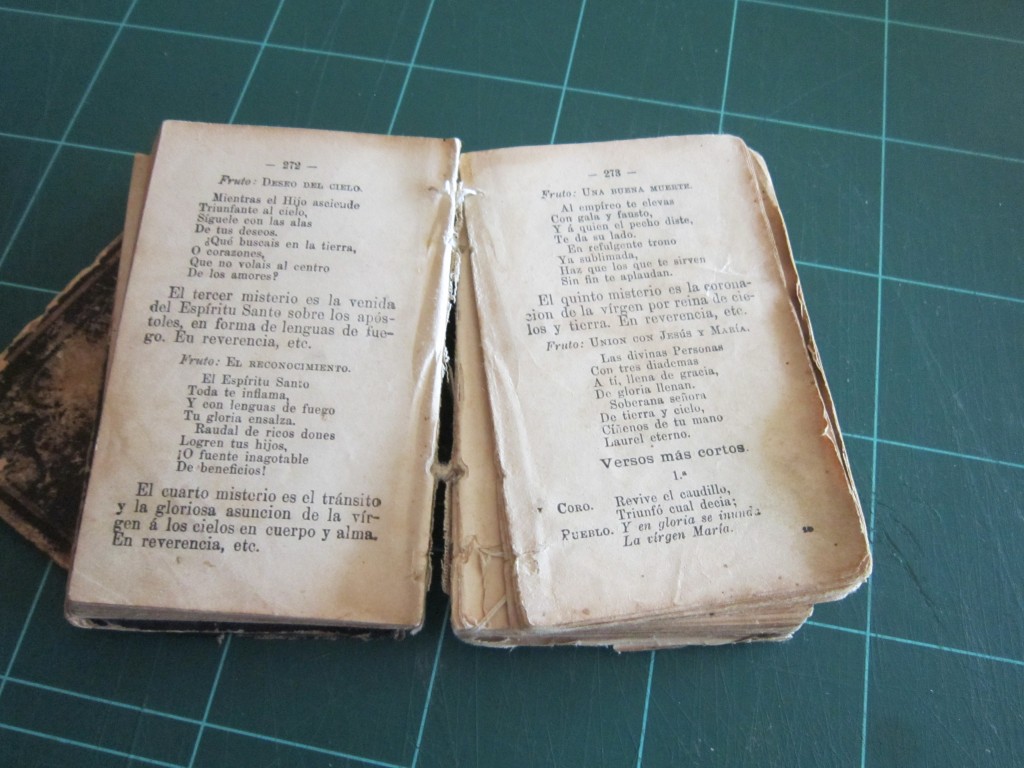 — 272 —
Fruto: DESEO DEL CIELO.
Mientras el Hijo asciende
Triunfante al cielo,
Síguele con las alas
De tus deseos.
¿Qué buscais en la tierra,
O corazones,
Que no volais al centro
De los amores?
El tercer misterio es la venida
del Espíritu Santo sobre los após-
toles, en forma de lenguas de fue-
go. En reverencia, etc.
Fruto: EL RECONOCIMIENTO.
El Espíritu Santo
Toda te inflama,
Y con lenguas de fuego
Tu gloria ensalza.
Raudal de ricos dones
Logren tus hijos,
¡O fuente inagotable
De beneficios!
El cuarto misterio es el tránsito
y la gloriosa asuncion de la vír-
gen á los cielos en cuerpo y alma.
En reverencia, etc.
— 273 —
Fruto: UNA BUENA MUERTE.
Al empíreo te elevas
Con gala y fausto,
Y á quien el pecho diste,
Te da su lado.
En refulgente trono
Ya sublimada,
Haz que los que te sirven
Sin fin te aplaudan.
El quinto misterio es la corona-
cion de la vírgen por reina de cie-
los y tierra. En reverencia, etc.
Fruto: UNION CON JESÚS Y MARÍA.
Las divinas Personas
Con tres diademas
A tí, llena de gracia,
De gloria llenan.
Soberana señora
De tierra y cielo,
Cíñenos de tu mano
Laurel eterno.
Versos más cortos.
1.ª
CORO. Revive el caudillo,
Triunfó cual decía;
PUEBLO. Y en gloria se inunda
La vírgen María.